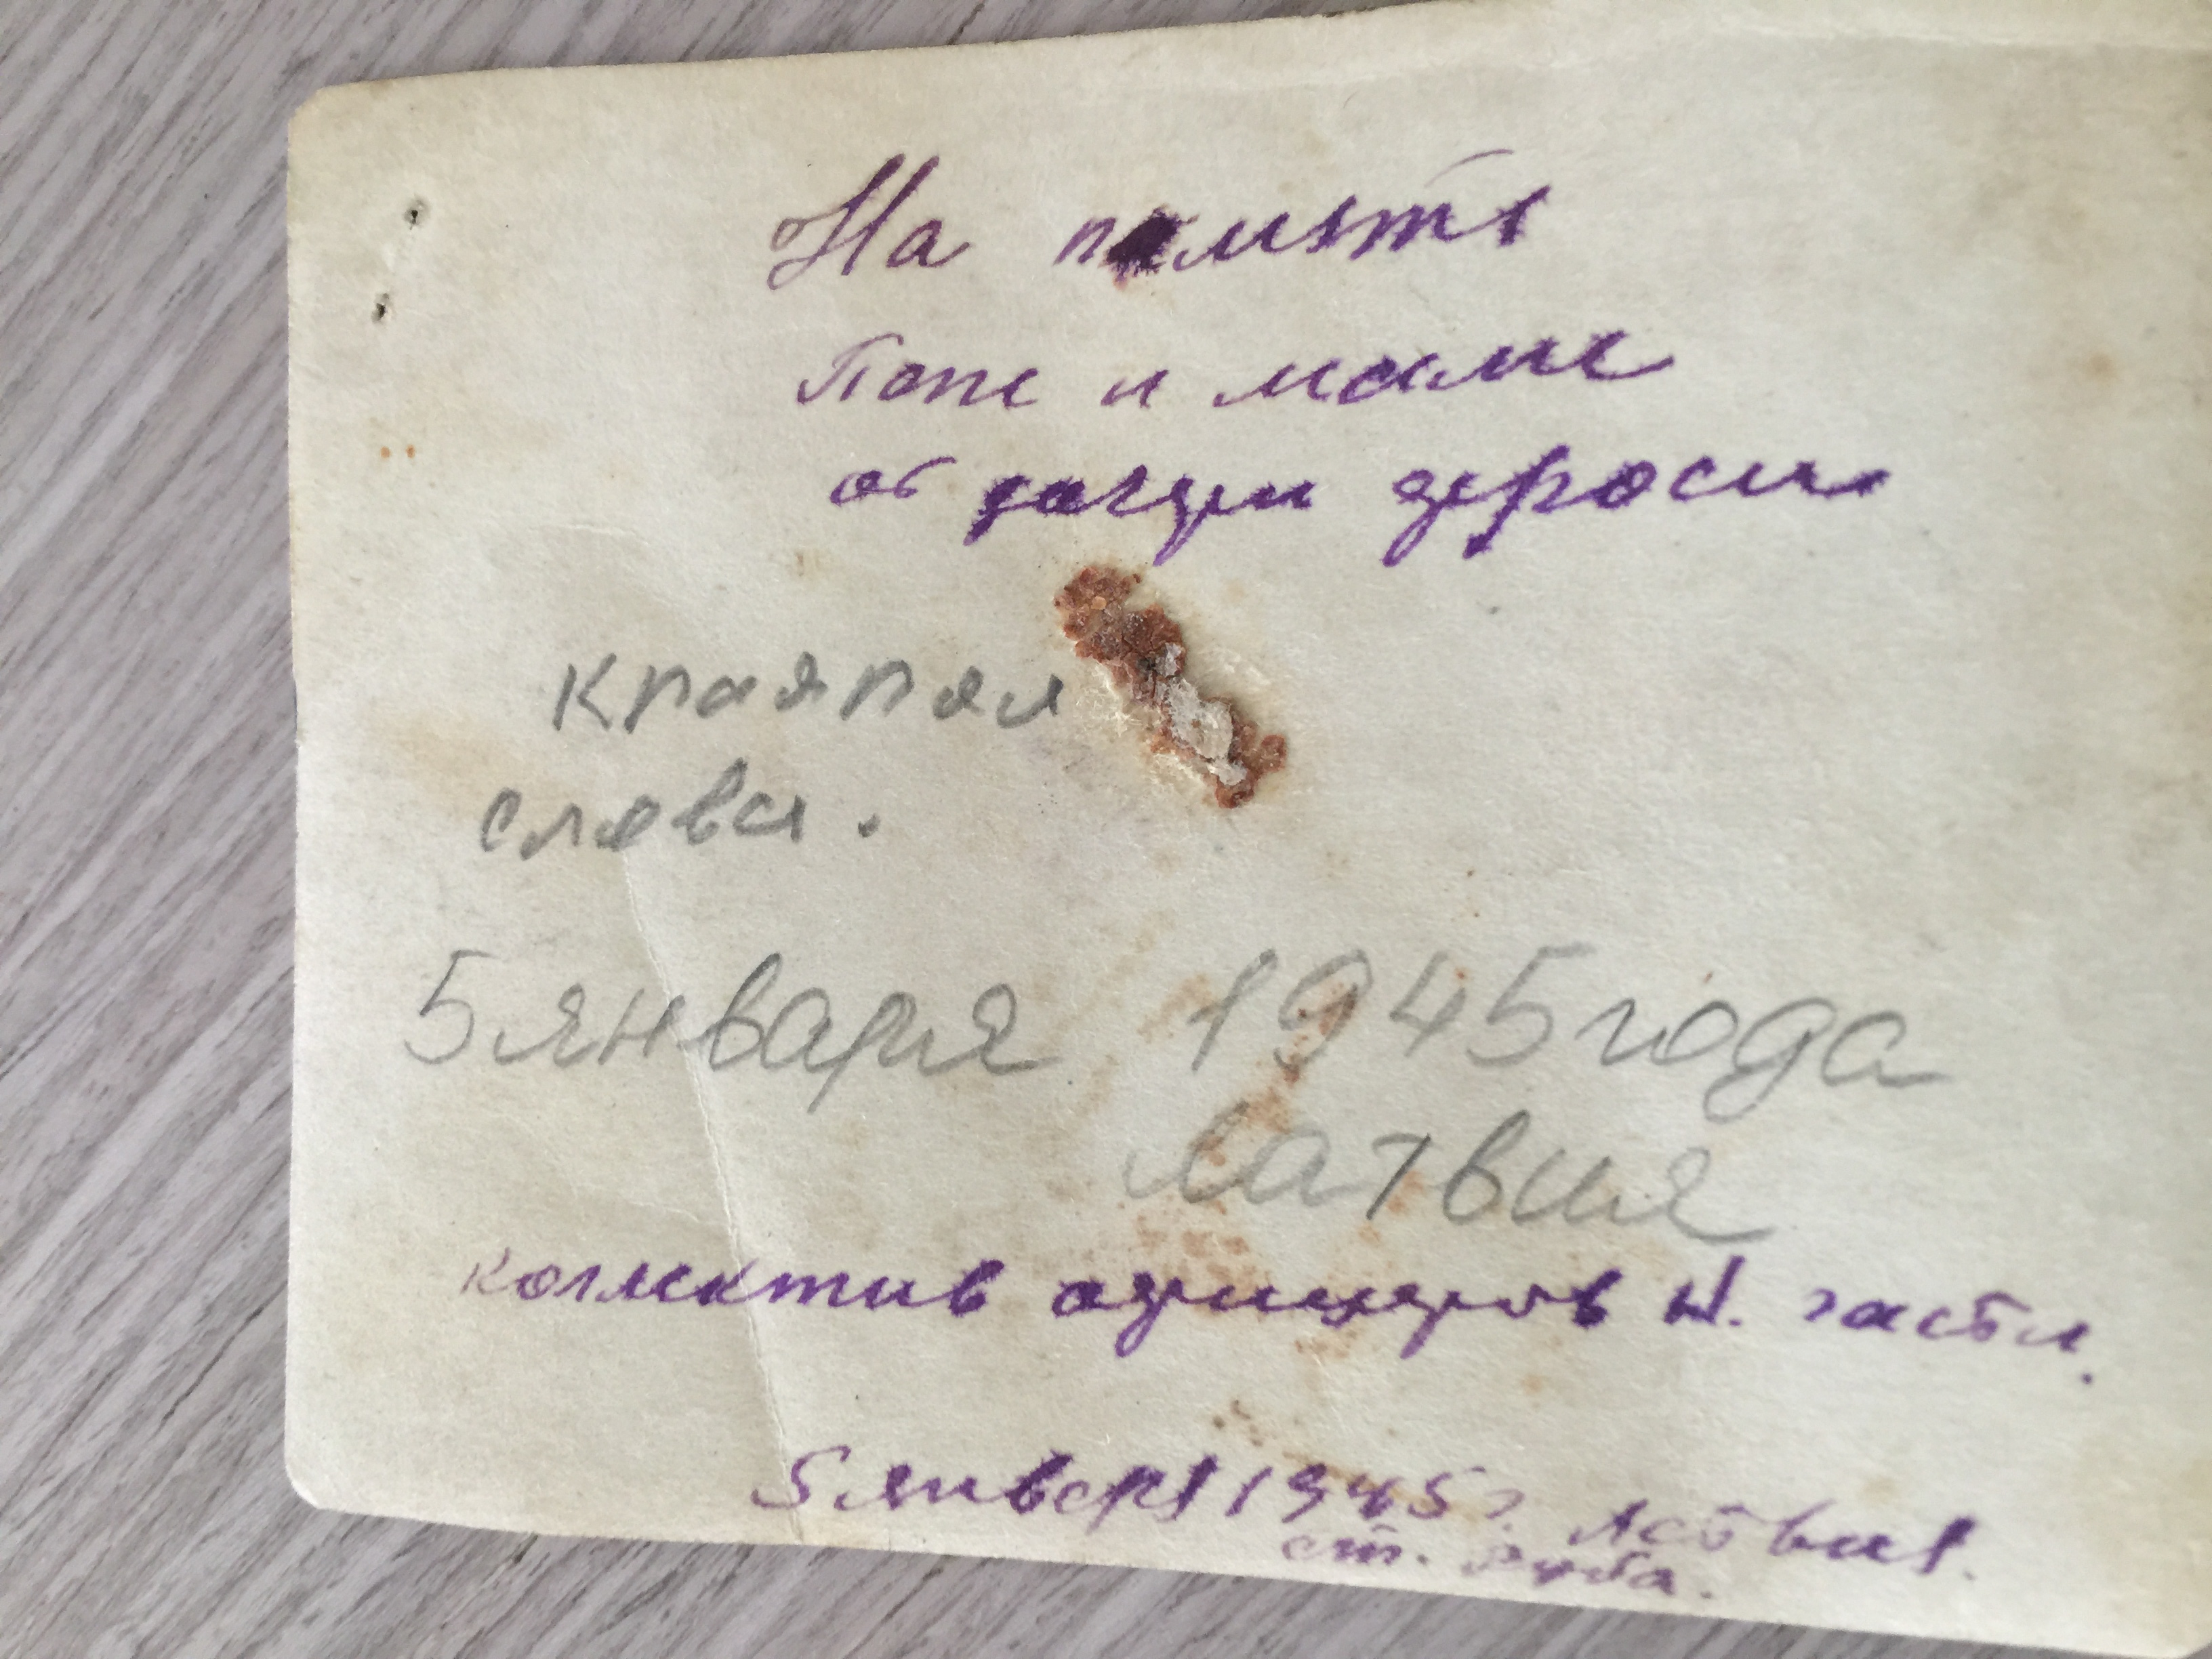 На память
Папе и маме
от дочери Фроси.
слова.
5 января 1945 года
Латвия
коллектив офицеров Н. части.
5 января 1945 г. Латвия.
ст. Руба.